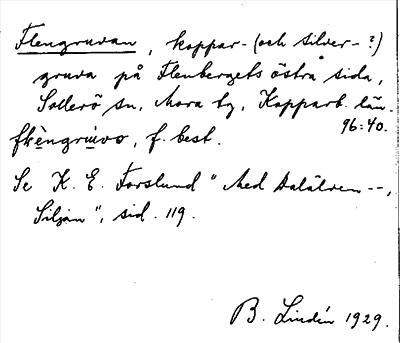 Flengruvan, koppar- (och silver- ?)
gruva på Flenbergets östra sida,
Sollerö sn, Mora tg, Kopparb. län.
96:40.
f. best.
Se K. E. Forslund "Med Dalälven --,
Siljan", sid. 119.
B. Lindén 1929.